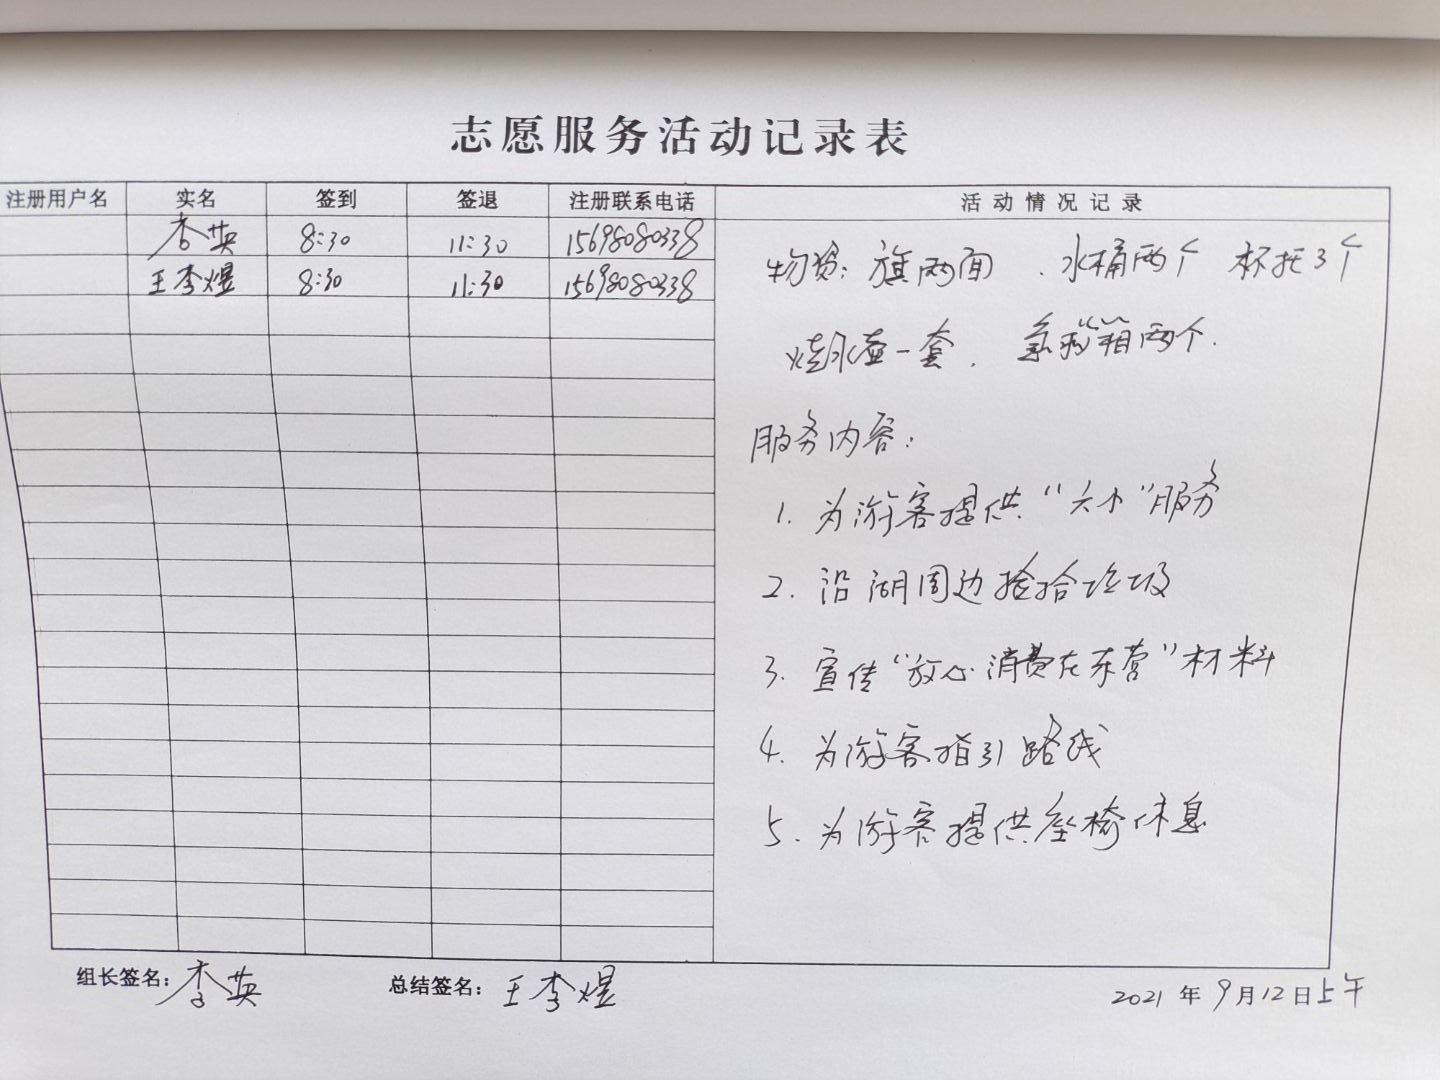 志愿服务活动记录表
注册用户名 实名 签到 签退 注册联系电话 活动情况记录
李英 8:30 11:30 15698080338
王李煜 8:30 11:30 15698080338
物资: 旗两面 、水桶两个 杯托3个
烧水壶一套. 急救箱两个.
服务内容:
1. 为游客提供“六小”服务
2. 沿湖周边捡拾垃圾
3. 宣传“放心消费在东营”材料
4. 为游客指引路线
5. 为游客提供座椅休息
组长签名: 李英 总结签名: 王李煜 2021年9月12日上午